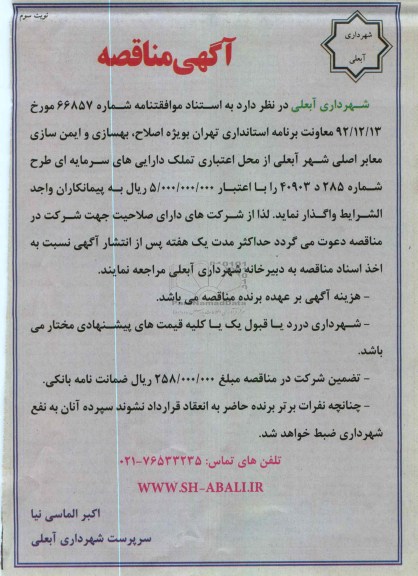 نوبت سوم
شهرداری
آبعلی
آگهی مناقصه
شهرداری آبعلی در نظر دارد به استناد موافقتنامه شماره ۶۶۸۵۷ مورخ
۹۲/۱۲/۱۳ معاونت برنامه استانداری تهران بویژه اصلاح، بهسازی و ایمن سازی
معابر اصلی شهر آبعلی از محل اعتباری تملک دارایی های سرمایه ای طرح
شماره ۲۸۵ د ۴۰۹۰۳ را با اعتبار ۵/۰۰۰/۰۰۰/۰۰۰ ریال به پیمانکاران واجد
الشرایط واگذار نماید. لذا از شرکت های دارای صلاحیت جهت شرکت در
مناقصه دعوت می گردد حداکثر مدت یک هفته پس از انتشار آگهی نسبت به
اخذ اسناد مناقصه به دبیرخانه شهرداری آبعلی مراجعه نمایند.
- هزینه آگهی بر عهده برنده مناقصه می باشد.
- شهرداری دررد یا قبول یک یا کلیه قیمت های پیشنهادی مختار می
باشد.
- تضمین شرکت در مناقصه مبلغ ۲۵۸/۰۰۰/۰۰۰ ریال ضمانت نامه بانکی.
- چنانچه نفرات برتر برنده حاضر به انعقاد قرارداد نشوند سپرده آنان به نفع
شهرداری ضبط خواهد شد.
تلفن های تماس: ۷۶۵۳۳۲۳۵-۰۲۱
WWW.SH-ABALI.IR
اکبر الماسی نیا
سرپرست شهرداری آبعلی